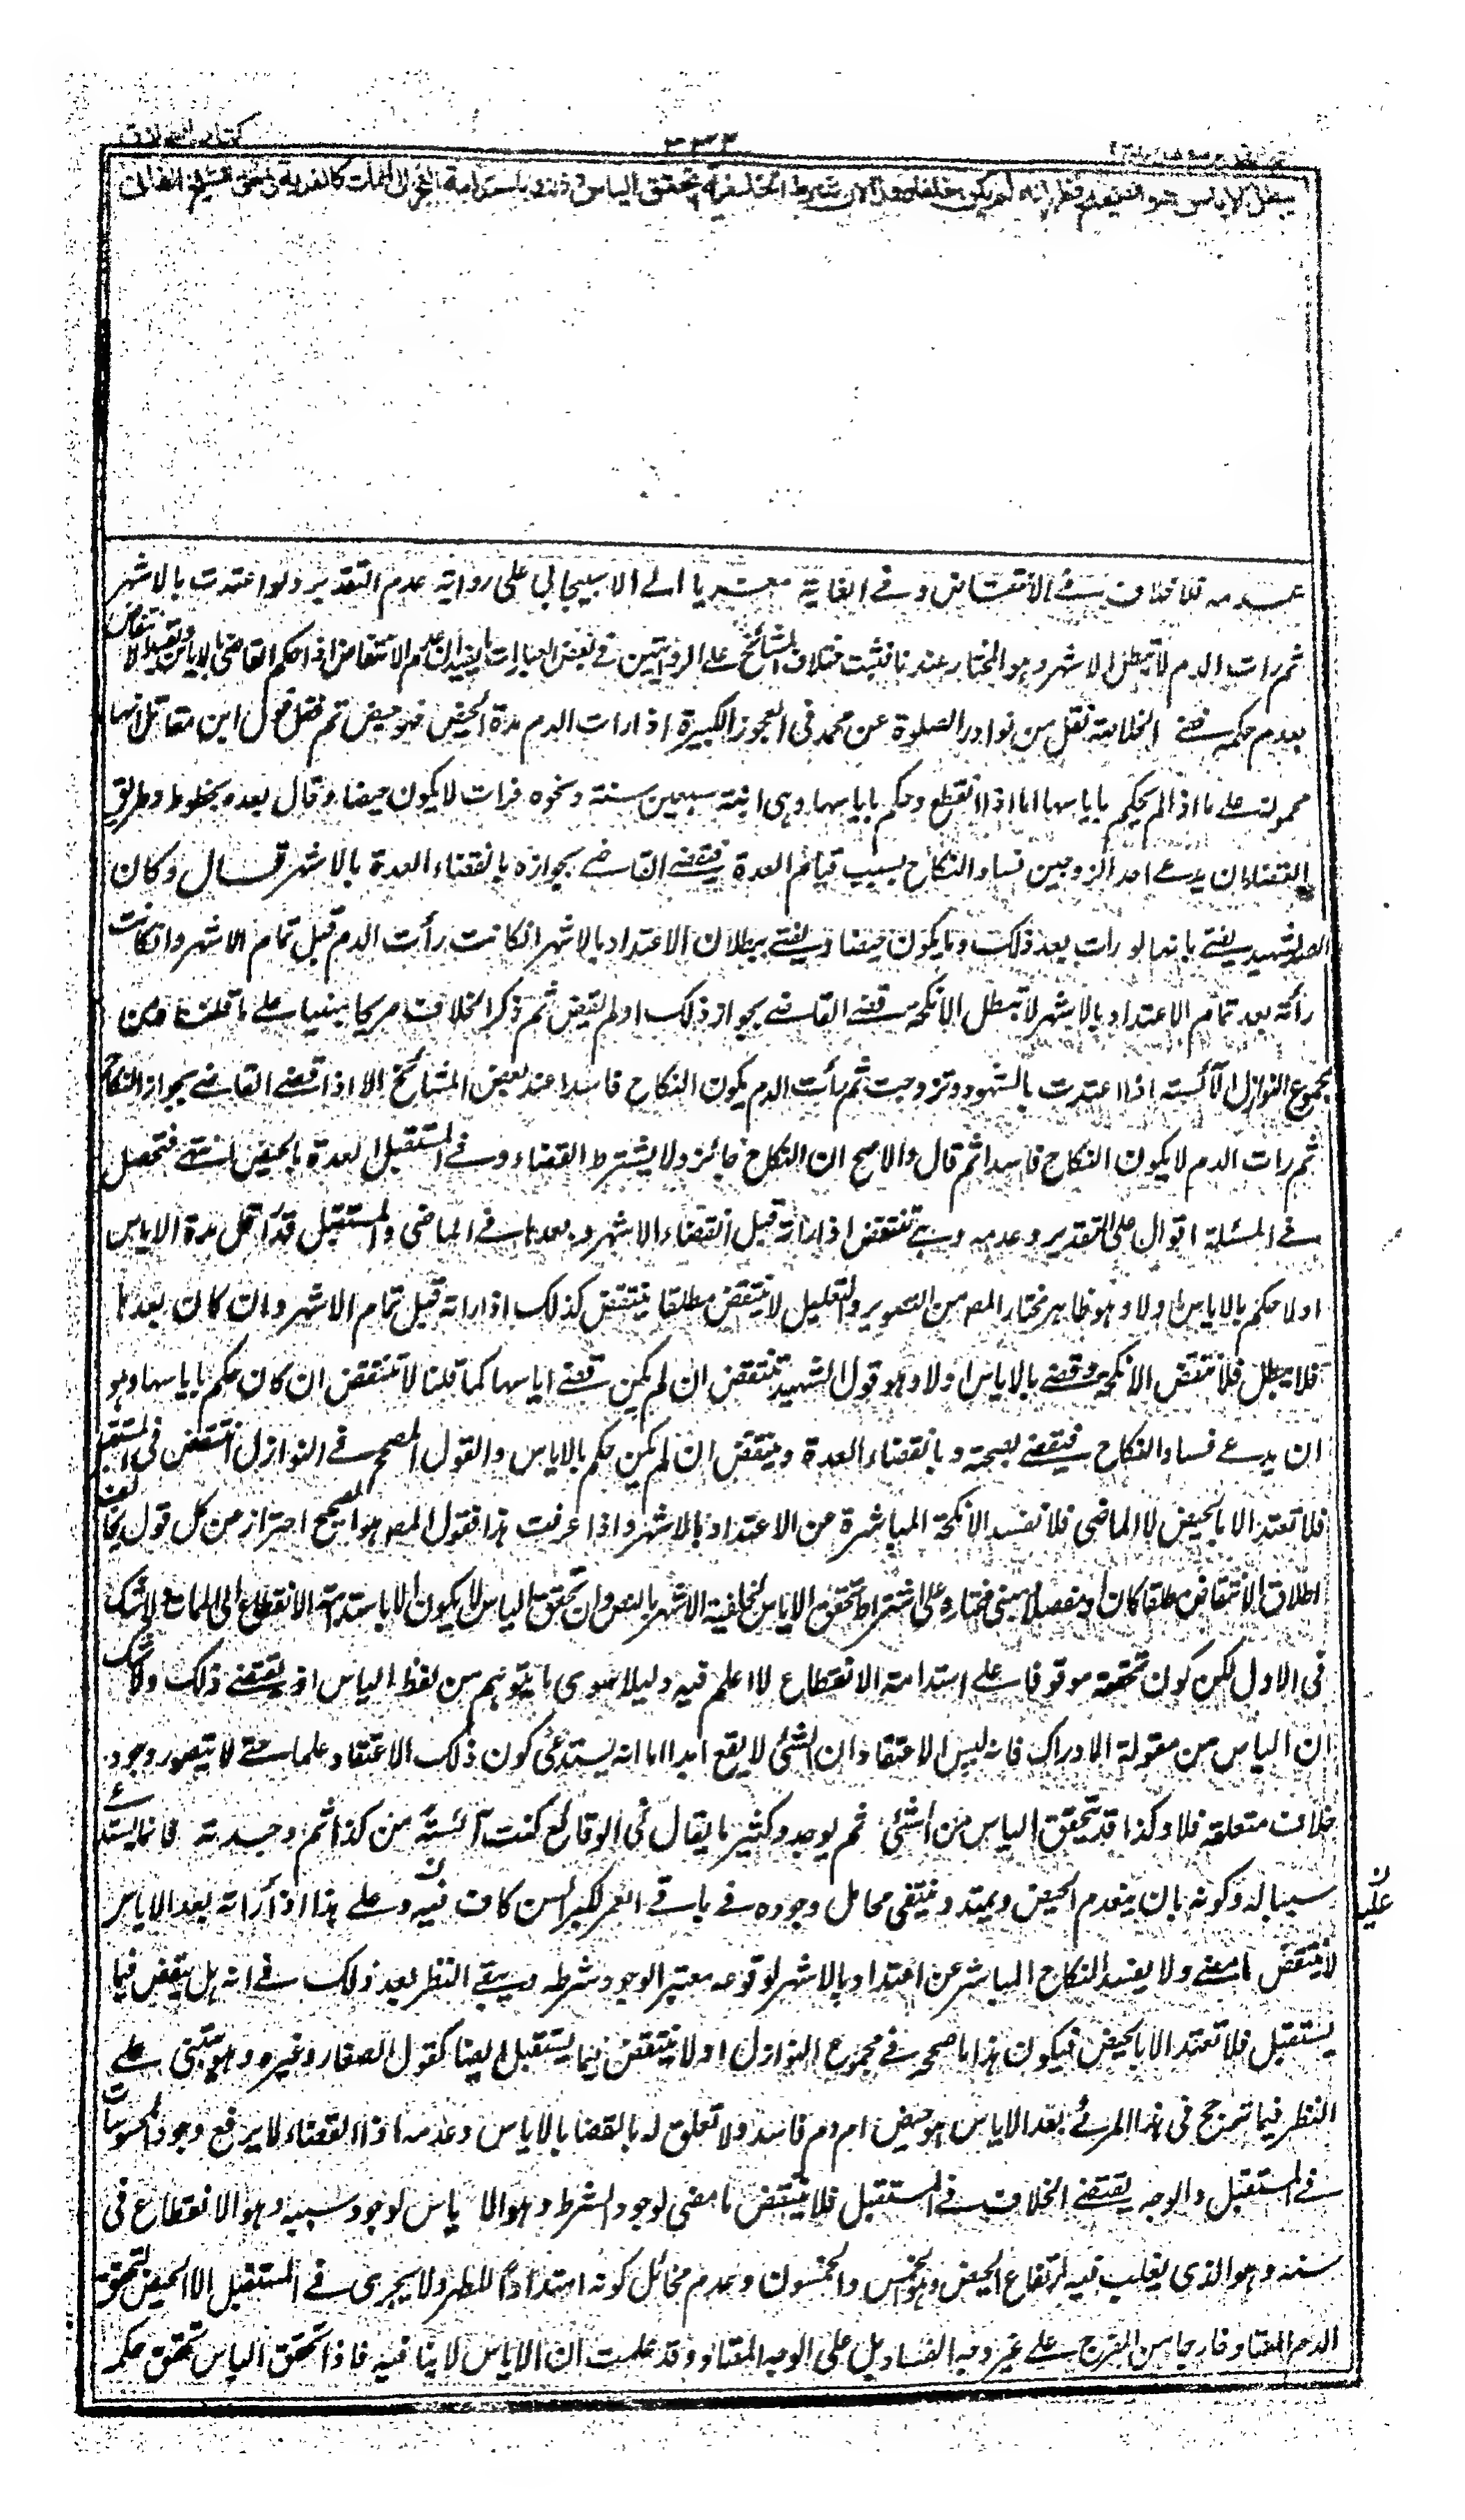 كتاب الطلاق
٣٣٣
يبطل الاياس هو الصحيح فظهر انه لم يكن خلفا وهذا لان شرط الخلفية تحقق الياس وذلك باستدامة العجز الى الممات كالفدية فى حق الشيخ الفانى
عدمه فلا خلاف فے الانتقاض وفے الغاية معزيا الے الاسبيجابى على رواية عدم التقدير ولو اعتدت بالاشهر
ثم رات الدم لا تبطل الاشهر وهو المختار عندنا فثبت اختلاف المشائخ على الروايتين فے بعض العبارات ما يفيد ان عدم الانتقاض اذا حكم القاضى بالاياس وبعضها الانتقاض
بعدم حكمه ففے الخلاصة نقل من نوادر الصلوة عن محمد فى العجوز الكبيرة اذا رات الدم مدة الحيض فهو حيض ثم نقل قول ابن مقاتل انها
محمولة علے ما اذا لم يحكم باياسها اما اذا انقطع وحكم باياسها وهى ابنة سبعين سنة ونحوه فرات لا يكون حيضا وقال بعده بخطوط وطريق
القضاء ان يدعے احد الزوجين فساد النكاح بسبب قيام العدة فيقضے القاضے بجوازه بانقضاء العدة بالاشهر قال وكان
الصدر الشهيد يفتے بانها لو رات بعد ذلك دما يكون حيضا ويفتے ببطلان الاعتداد بالاشهر ان كانت رأت الدم قبل تمام الاشهر وان كانت
رأته بعد تمام الاعتداد بالاشهر لا تبطل الانكحة قضے القاضے بجواز ذلك اولم يقض ثم ذكر الخلاف صريحا مبنيا علے ما قلنا من
مجموع النوازل الآئسة اذا اعتدت بالشهور وتزوجت ثم رأت الدم يكون النكاح فاسدا عند بعض المشائخ الا اذا قضے القاضے بجواز النكاح
ثم رات الدم لا يكون النكاح فاسدا ثم قال والاصح ان النكاح جائز ولا يشترط القضاء وفے المستقبل العدة بالحيض انتهے فتحصل
فے المسئلة اقوال على التقدير وعدمه وهے تنتقض اذا راته قبل انقضاء الاشهر وبعدها فے الماضى والمستقبل قدر اقل مدة الاياس
اولا حكم بالاياس اولا وهو ظاهر مختار المص من التصوير والتعليل لا ينتقض مطلقا ينتقض كذلك اذا راته قبل تمام الاشهر وان كان بعدها
فلا يبطل فلا تنقض الانكحة وقضے بالاياس اولا وهو قول الشهيد تنتقض ان لم يكن قضے اياسها كما قلنا لا تنتقض ان كان حكم باياسها وهو
ان يدعے فساد النكاح فيقضے بصحته وبانقضاء العدة وينتقض ان لم يكن حكم بالاياس والقول المصحح فے النوازل تنتقض فى المستقبل
فلا تعتد الا بالحيض لا الماضى فلا تفسد الانكحة المباشرة عن الاعتداد بالاشهر واذا عرفت هذا فقول المص هو الصحيح احتراز من كل قول يخالف
اطلاق الانتقاض مطلقا كان او مفصلا ومبنى مختاره على اشتراط تحقق الاياس لخلفية الاشهر بالنص وان تحقق الياس لا يكون الا باستدامة الانقطاع الى الممات ولا شك
فى الاول لكن كون تحققه موقوفا علے استدامة الانقطاع لا اعلم فيه دليلا سوى ما يتوهم من لفظ الياس انه يقتضے ذلك ولا شك
ان الياس من مقولة الادراك فانه ليس الا اعتقاد ان الشئ لا يقع ابدا اما انه يستدعى كون ذلك الاعتقاد علما حتے لا يتصور وجود
خلاف متعلقه فلا وكذا قد تحقق الياس من الشئ ثم يوجد وكثير ما يقال فى الوقائع كنت آئسة من كذا ثم وجدته فانما يستدعے
سببا له وكونه بان ينعدم الحيض ويمتد وينتفى محامل وجوده فے باقے العمر لكبر السن كاف فيه وعلے هذا اذا راته بعد الاياس
لا ينتقض ما مضے ولا يفسد النكاح المباشر عن اعتداد بالاشهر لوقوعه معتبرا لوجود شرطه ويبقے النظر بعد ذلك فے انه هل ينتقض فيما
يستقبل فلا تعتد الا بالحيض فيكون هذا ما صححه فے مجموع النوازل اولا ينتقض فيما يستقبل ايضا كقول الصفار وغيره وهو يبتنى على
النظر فيما ترجح فى هذا المرئے بعد الاياس اهو حيض ام دم فاسد ولا تعلق له بالقضا بالاياس وعدمه اذ القضاء لا يرفع وجود المحسوسات
فے المستقبل والوجه يقتضے الخلاف فے المستقبل فلا ينتقض ما مضى لوجود الشرط وهو الاياس لوجود سببه وهو الانقطاع فى
سنه وهو الذى يغلب فيه ارتفاع الحيض وهو الخمس والخمسون وعدم مخائل كونه امتدادا للطهر ولا يجرى فے المستقبل الا الحيض لتحقق
الدم المعتاد خارجا من الفرج علے غير وجه الفساد بل على الوجه المعتاد وقد علمت ان الاياس لا ينافيه فاذا تحقق الياس تحقق حكمه